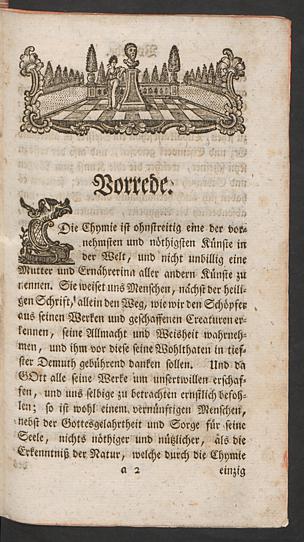 Vorrede.
Die Chymie ist ohnstreitig eine der vor-
nehmsten und nöthigsten Künste in
der Welt, und nicht unbillig eine
Mutter und Ernäherin aller andern Künste zu
nennen. Sie weiset uns Menschen, nächst der heili-
gen Schrift, allein den Weg, wie wir den Schöpfer
aus seinen Werken und geschaffenen Creaturen er-
kennen, seine Allmacht und Weisheit wahrneh-
men, und ihm vor diese seine Wohlthaten in tief-
ster Demuth gebührend danken sollen. Und da
GOtt alle seine Werke um unsertwillen erschaf-
fen, und uns selbige zu betrachten ernstlich befoh-
len; so ist wohl einem vernünftigen Menschen,
nebst der Gottesgelahrtheit und Sorge für seine
Seele, nichts nöthiger und nützlicher, als die
Erkenntniß der Natur, welche durch die Chymie
a 2 einzig